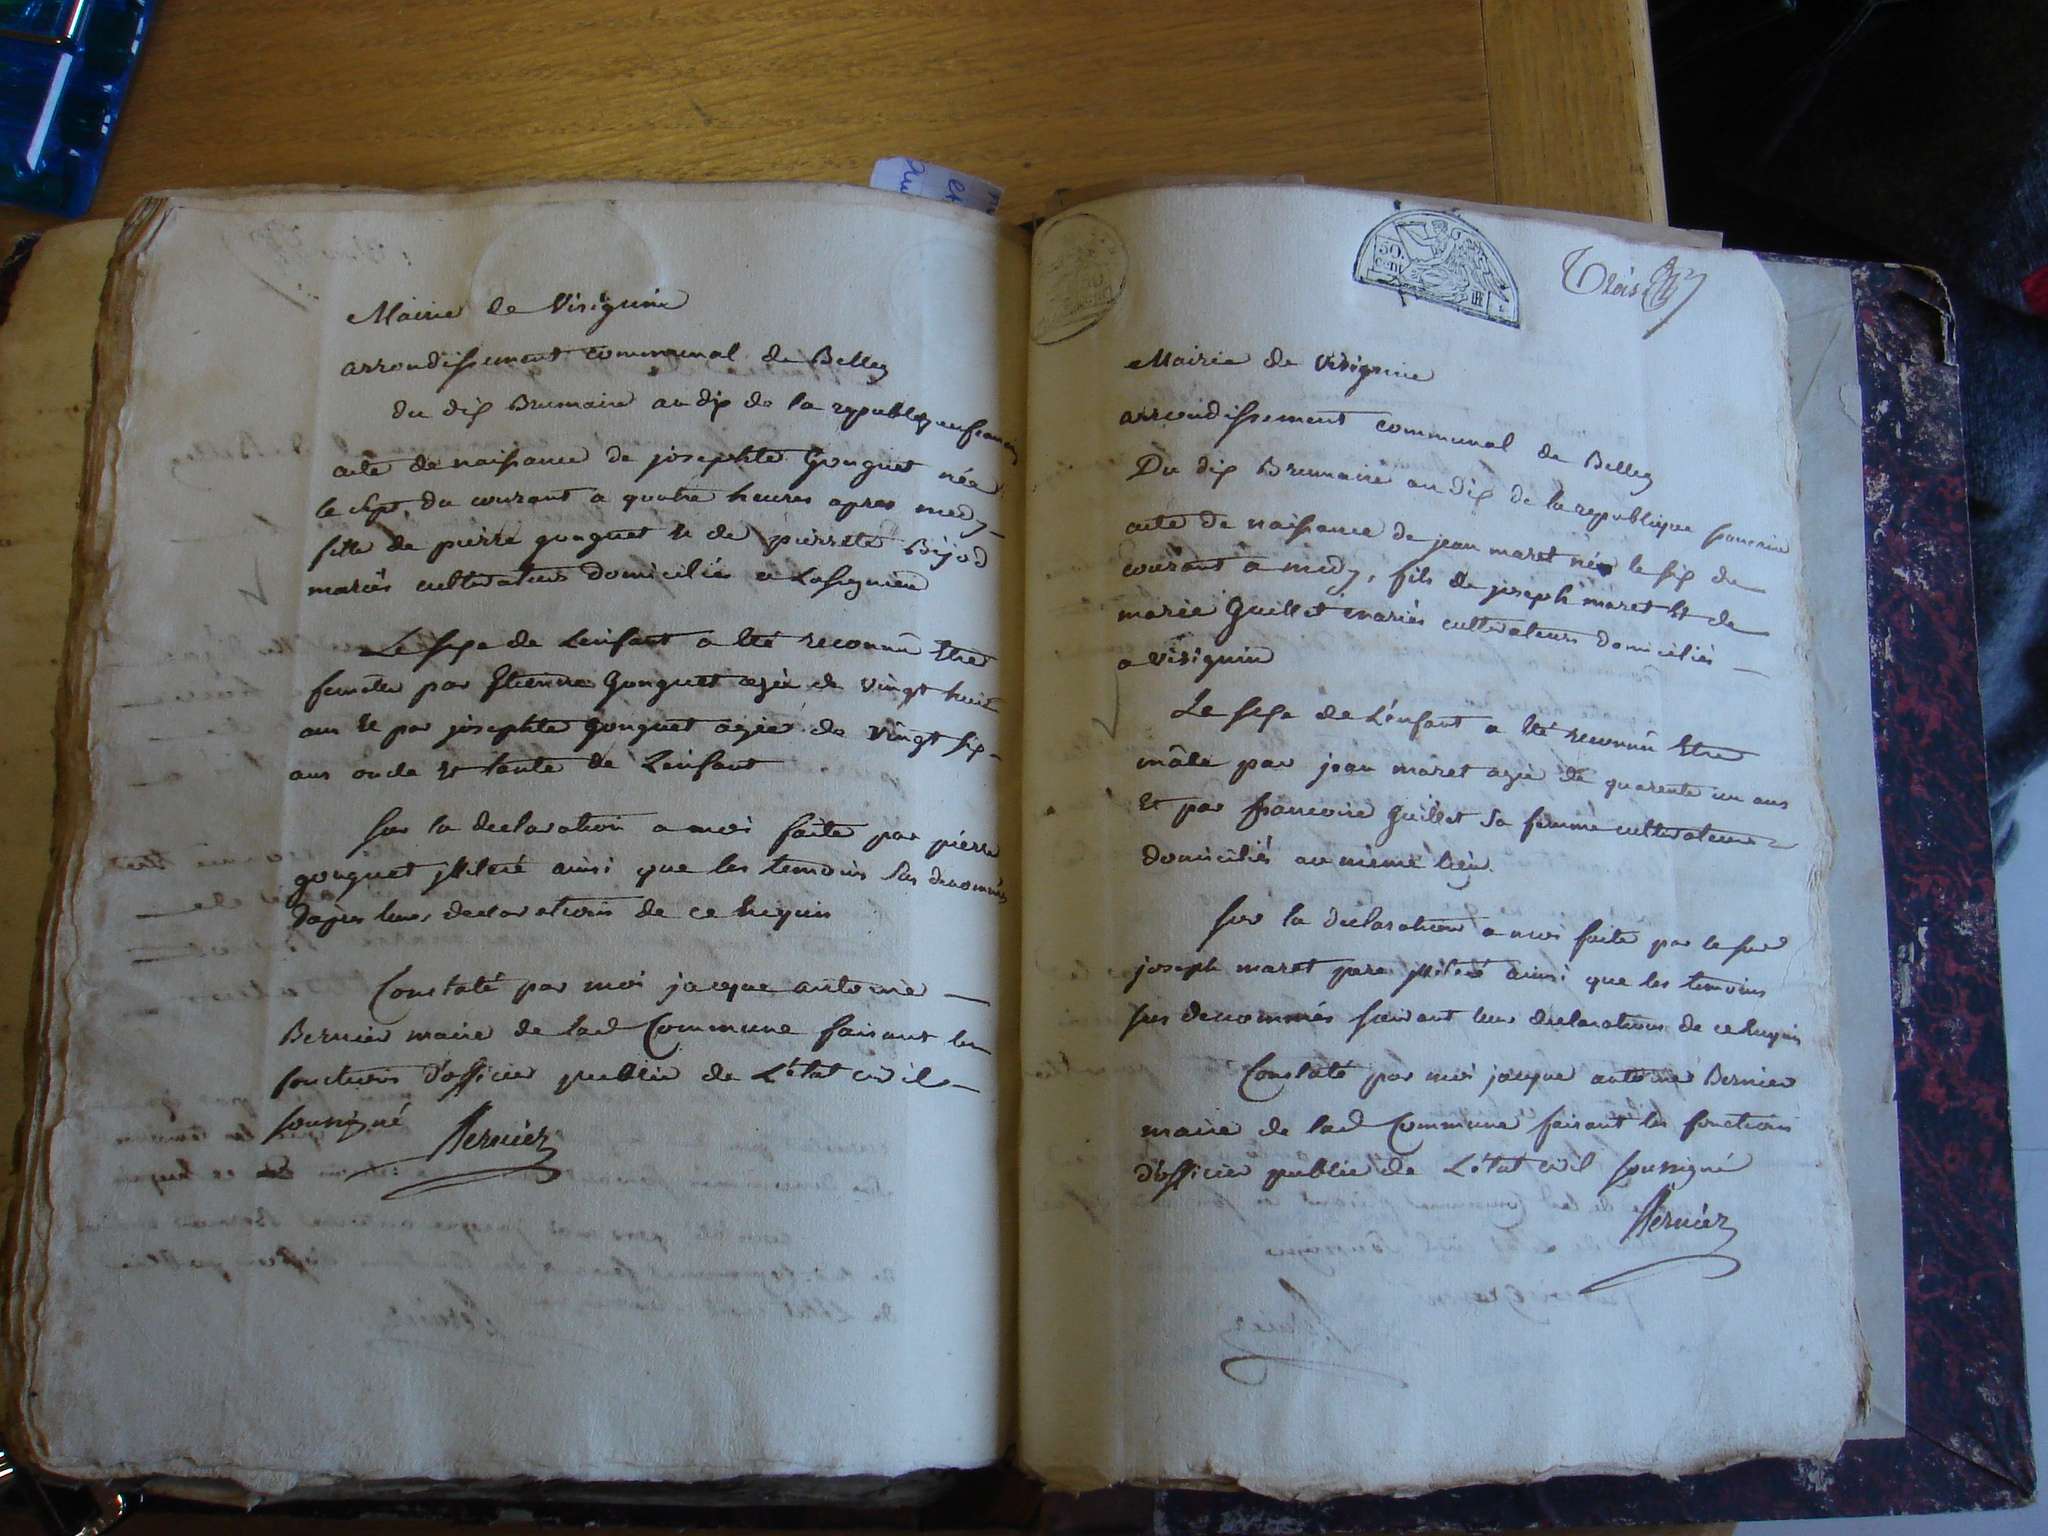 Mairie de Virignin
arrondissement communal de Belley
du dix Brumaire an dix de la republique francais
acte de naissance de josephte Gonguet née
le sept du courant a quatre heures apres medy
fille de pierre gonguet et de pierrette Bijod
mariés cultivateurs domiciliés a Lassignieu
Le sexe de Lenfant a été reconnû Etre
femelle par Etienne Gonguet agée de vingt huit
ans Et par josephte Gonguet agée de vingt six
ans oncle Et tante de Lenfant
sur la declaration a moi faite par pierre
gonguet illiteré ainsi que les temoins sus denommés
dapres leurs declarations de ce requis
Constaté par moi jacque antoine
Bernier maire de lad Commune faisant les
fonctions d'officier public de L'état civil
soussigné
Bernier
30
cent
RF
Trois
Mairie de Virignin
arrondissement communal de Belley
Du dix Brumaire an dix de la republique francaise
acte de naissance de jean maret né le six du
courant a midy, fils de joseph maret Et de
marie Guillet mariés cultivateurs domiciliés
a virignin
Le sexe de L'enfant a été reconnû Etre
mâle par jean maret agée de quarente un ans
Et par francoise Guillet sa femme cultivateurs
domiciliés au même lieu.
sur la declaration a moi faite par le sud
joseph maret pere illiteré ainsi que les temoins
sus denommés suivant leur declarations de ce requis
Constaté par moi jacque antoine Bernier
maire de lad Commune faisant les fonctions
d'officier public de L'état civil soussigné
Bernier